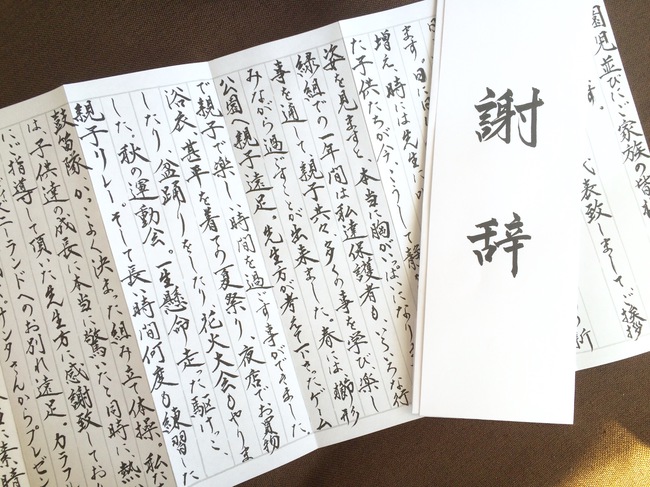 園児並びにご家族の皆
ます。
代表致しましてご挨拶
の所
謝辞
ます。日に日に
増え、時には先生に
た子供たちが今、こうして静か
姿を見ますと、本当に胸がいっぱいになりま
緑組での一年間は私達保護者もいろいろな行
事を通して、親子共々多くの事を学び、楽し
みながら過ごすことが出来ました。春には獅形
公園へ親子遠足。先生方が考えて下さったゲーム
で親子で楽しい時間を過ごす事ができました
浴衣、甚平を着ての夏祭り、夜店でお買物
したり、盆踊りをしたり、花火大会もやりま
した。秋の運動会。一生懸命走った駆けっこ、
親子リレー。そして長い時間何度も練習した
鼓笛隊、かっこよく決まった組み立て体操、私た
は、子供達の成長に本当に驚いたと同時に、熱
ご指導して頂いた先生方に感謝致してお
ニーランドへのお別れ遠足。カラフ
サンタさんからプレゼン
に素晴